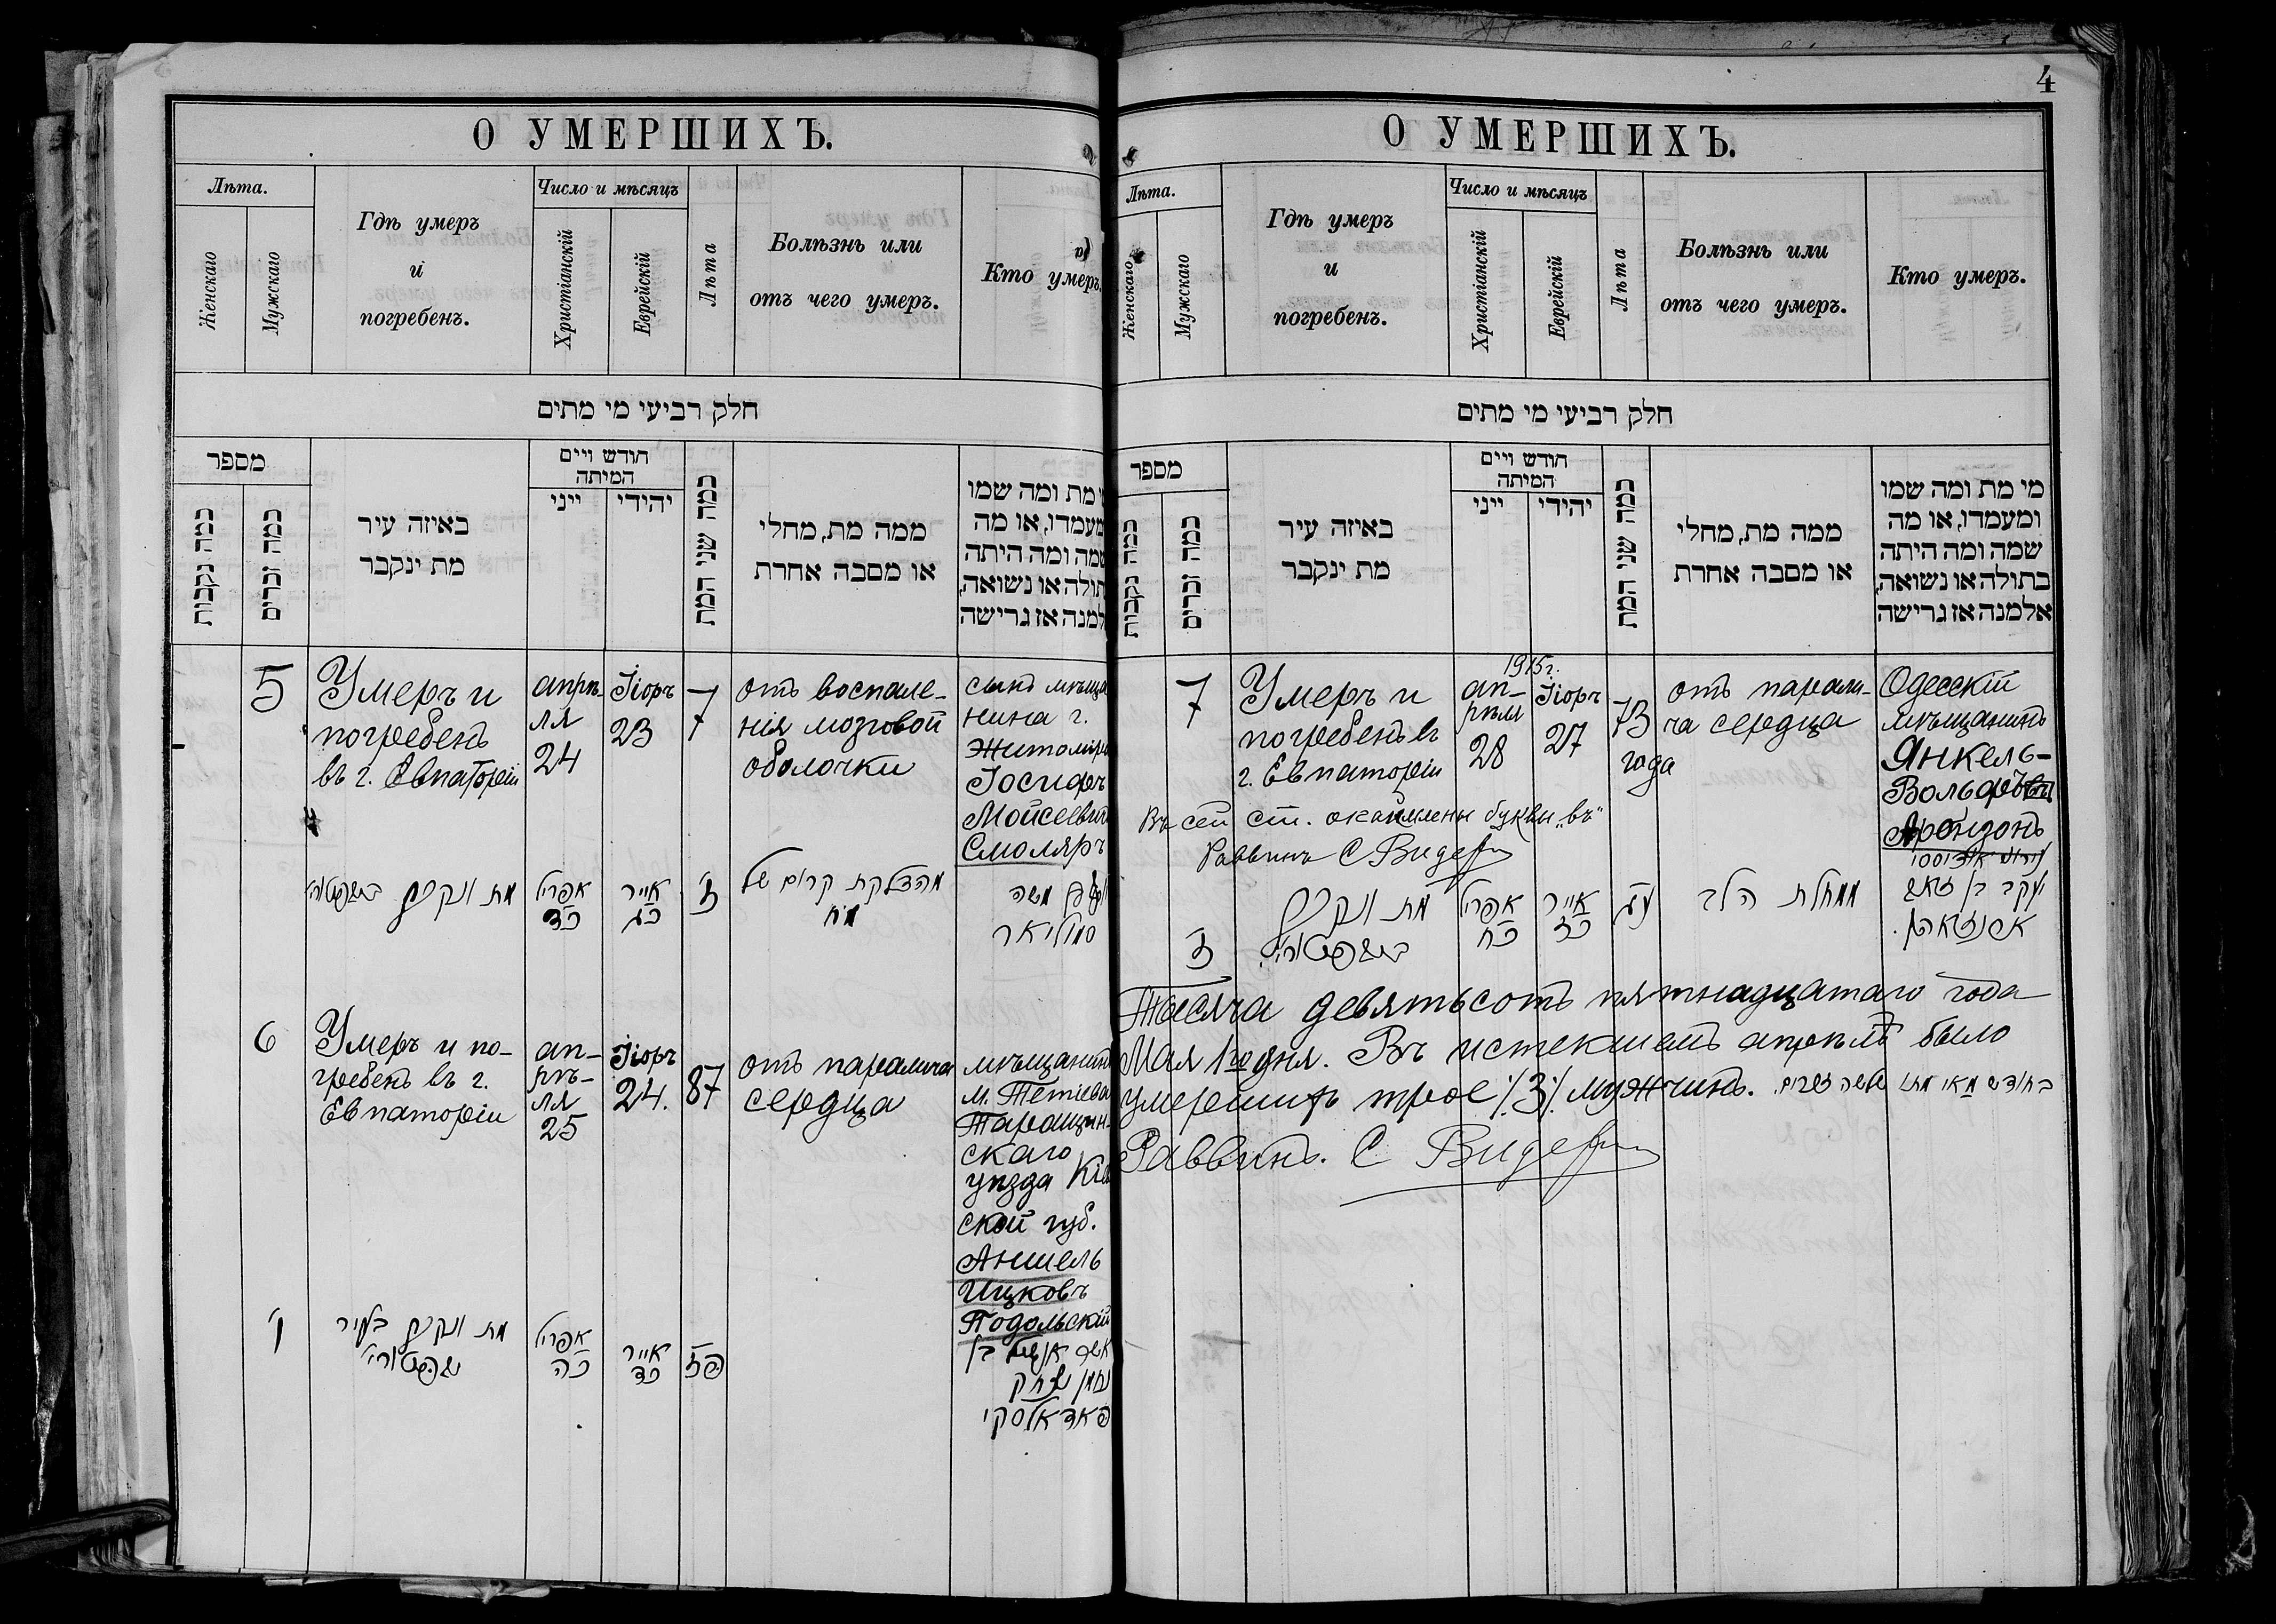 О УМЕРШИХЪ.
Лѣта.
Женскаго
Мужскаго
Гдѣ умеръ
и
погребенъ.
Число и мѣсяцъ
Христіанскій
Еврейскій
Лѣта
Болѣзнь или
отъ чего умеръ.
Кто умеръ.
חלק רביעי מי מתים
מספר
כמה נקבות
כמה זכרים
באיזה עיר
מת ינקבר
חודש ויים
המיתה
ייני
יהידי
כמה שני המת
ממה מת, מחלי
או מסבה אחרת
מת ומה שמו
מעמדו, או מה
שמה ומה היתה
תולה או נשואה,
למנה אז גרישה
5
Умеръ и
погребенъ
въ г. Евпаторіи
апрѣ
ля
24
Іюръ
23
7
отъ воспале-
нія мозговой
оболочки
сынъ мѣща
нина г.
Житомира
Іосифъ
Мойсевичъ
Смоляръ
מת ונקבר
אפריל
כד
אייר
כג
ז'
מהדלקת קרום של
מח
יוסף משה
סמוליאר
6
Умеръ и по-
гребенъ въ г.
Евпаторіи
ап-
рѣ-
ля
25
Іюръ
24.
87
отъ паралича
сердца
мѣщанинъ
м. Тетіева
Таращан-
скаго
уѣзда Кіев
ской губ.
Аншель
Ицковъ
Подольскій
ו'
מת ונקבר בעיר
אפריל
כה
אייר
כד
פז
אשר אנשל בן
נחמן יצחק
פאדאלסקי
4
О УМЕРШИХЪ.
Лѣта.
Женскаго
Мужскаго
Гдѣ умеръ
и
погребенъ.
Число и мѣсяцъ
Христіанскій
Еврейскій
Лѣта
Болѣзнь или
отъ чего умеръ.
Кто умеръ.
חלק רביעי מי מתים
מספר
כמה נקבות
כמה זכרים
באיזה עיר
מת ינקבר
חודש ויים
המיתה
ייני
יהידי
כמה שני המת
ממה מת, מחלי
או מסבה אחרת
מי מת ומה שמו
ומעמדו, או מה
שמה ומה היתה
בתולה או נשואה,
אלמנה אז גרישה
7
Умеръ и
погребенъ въ
г. Евпаторіи
1915г.
ап-
рѣля
28
Іюръ
27
73
года
отъ парали-
ча сердца
Одесскій
мѣщанинъ
Янкель-
Вольфъ
Аронзонъ
Въ сей ст. окаймлены буквы „въ"
Раввинъ С Видер
ז
מת ונקבר
אפריל
כח
אייר
כז
עג
ממחלת הלב
יעקב בן זאב
Тысяча девятьсотъ пятнадцатаго года
Мая 1го дня. Въ истекшемъ апрѣлѣ было
умершихъ трое /3/ мужчинъ. בחודש מאי מתו שלשה זכרים.
Раввинъ. С Видер